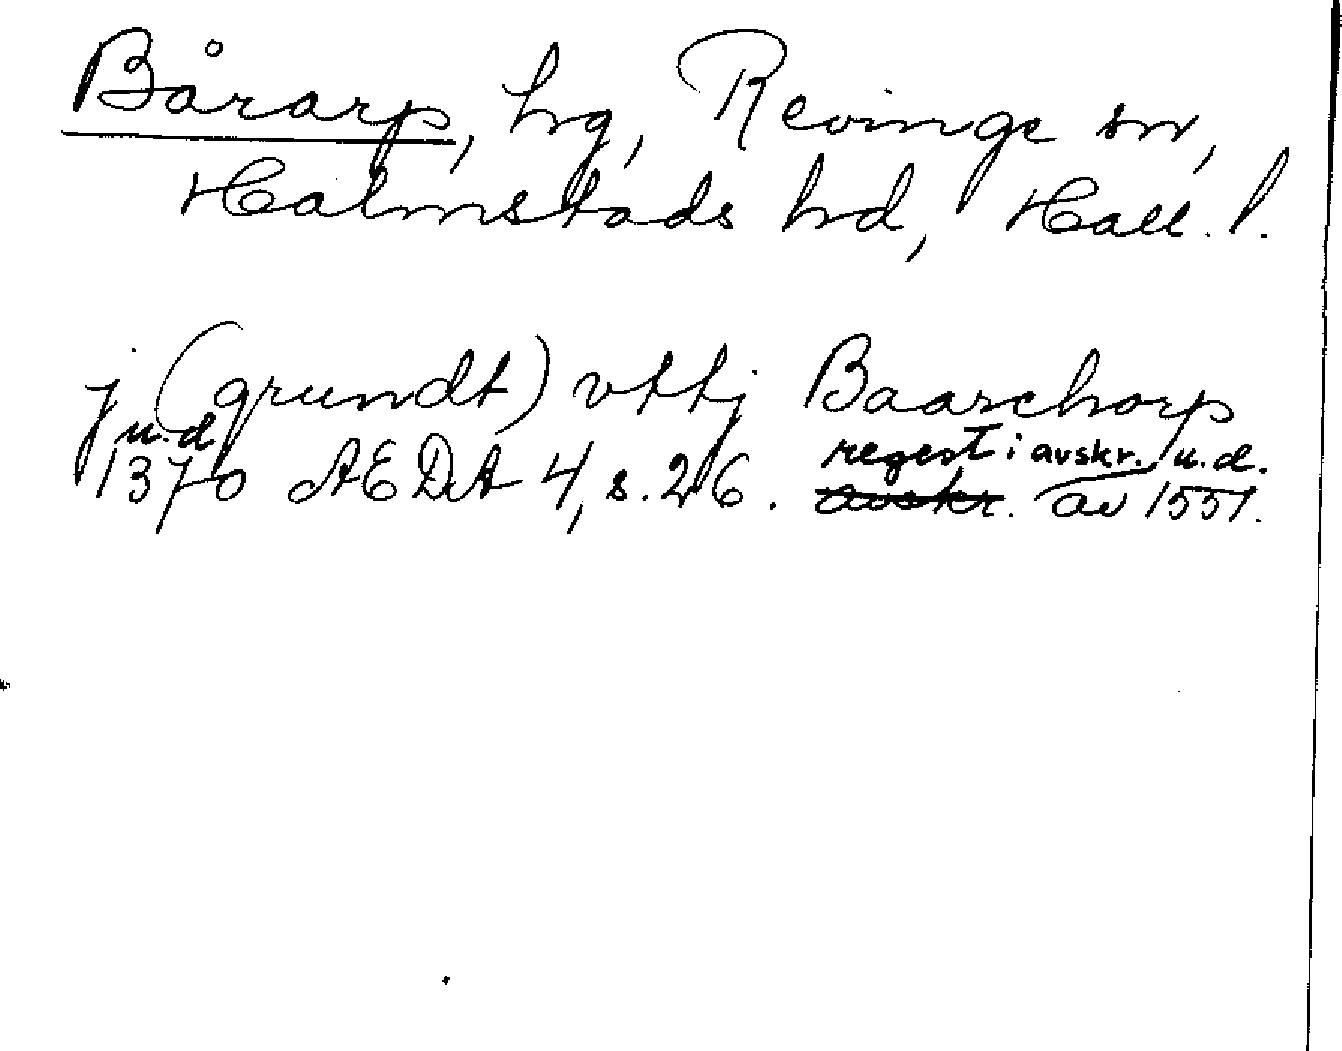 Bårarp, hg, Revinge sn,
Halmstads hd, Hall. l.
j (grundt) vtti Baarchorp
u.d.
1370 AEDA 4, s. 26. regest i avskr. u.d.
avskr. av 1551.